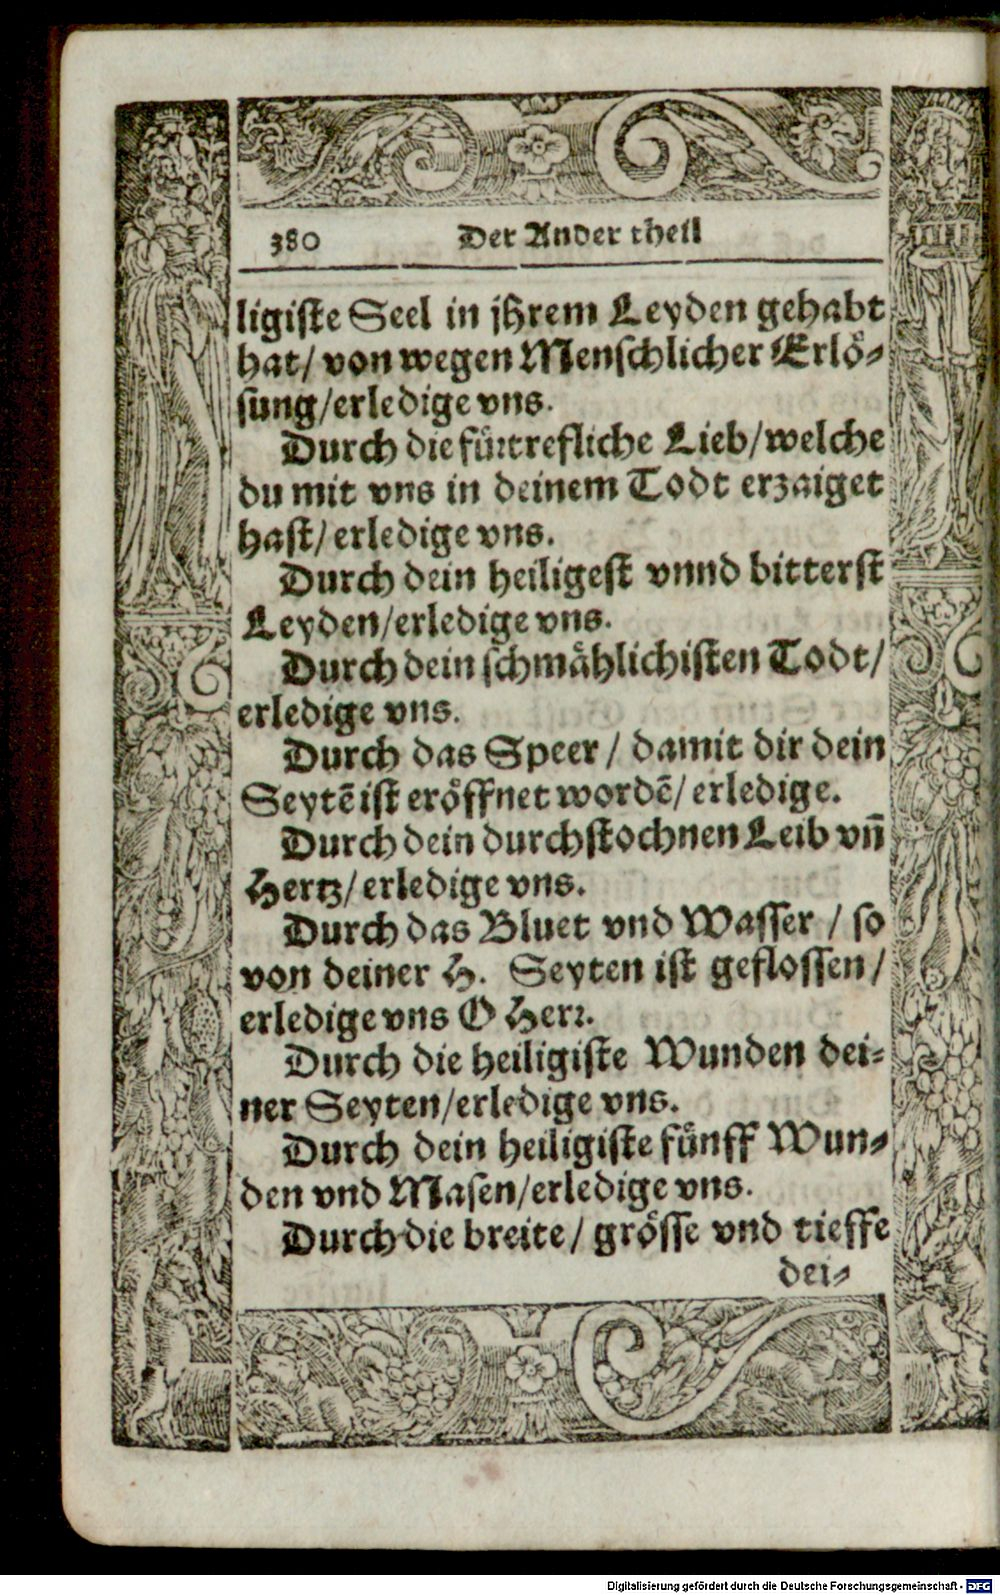 380 Der Ander theil
ligiste Seel in jhrem Leyden gehabt
hat/ von wegen Menschlicher Erlö-
sung/erledige vns.
Durch die fürtrefliche Lieb/welche
du mit vns in deinem Todt erzaiget
hast/ erledige vns.
Durch dein heiligest vnnd bitterst
Leyden/erledige vns.
Durch dein schmåhlichisten Todt/
erledige vns.
Durch das Speer / damit dir dein
Seytẽ ist eröffnet wordẽ/ erledige.
Durch dein durchstochnen Leib vñ
Hertz/ erledige vns.
Durch das Bluet vnd Wasser / so
von deiner H. Seyten ist geflossen/
erledige vns O Herr.
Durch die heiligiste Wunden dei-
ner Seyten/erledige vns.
Durch dein heiligiste fünff Wun-
den vnd Masen/erledige vns.
Durch die breite/ grösse vnd tieffe
dei-
Digitalisierung gefördert durch die Deutsche Forschungsgemeinschaft - DFG